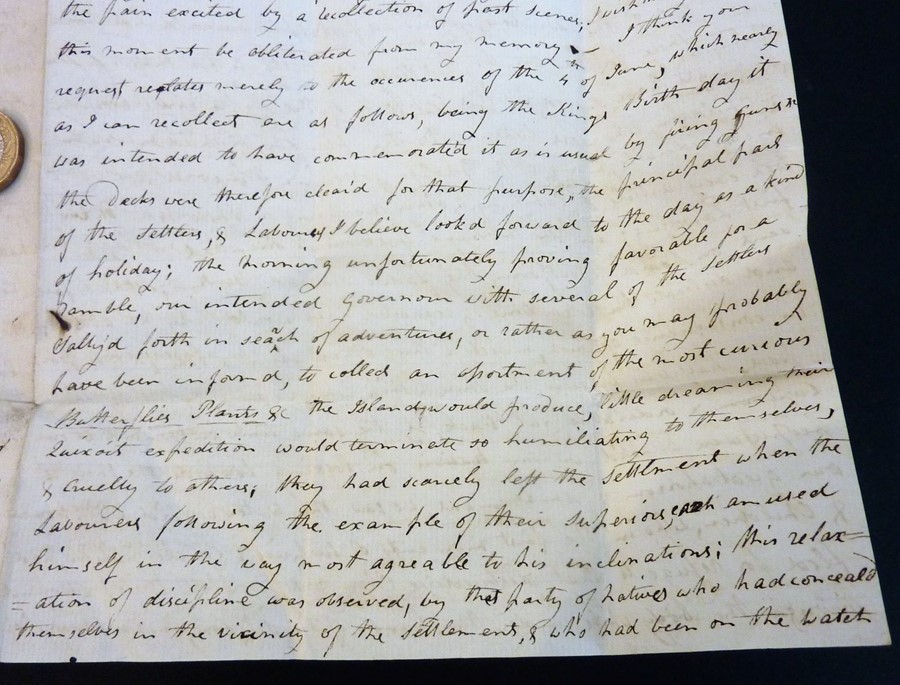 the pain excited by a recollection of past scenes, I wish
this moment be obliterated from my memory — I think your
request relates merely to the occurences of the 4th of June, which nearly
as I can recollect are as follows, being the Kings Birth day it
was intended to have commemorated it as is usual by firing Guns &
the Decks were therefore cleaid for that purpose, the principal part
of the Settlers, & Labourers I believe lookd forward to the day as a kind
of holiday; the morning unfortunately proving favorable for a
ramble, our intended Governour with several of the Settlers
Sallyd forth in seach of adventures, or rather as you may probably
have been informd, to collect an assortment of the most curious
Butterflies Plants &c the Island would produce, little dreaming their
Quixoit expedition would terminate so humiliating to themselves,
& cruelty to others; they had scarcely left the Settlment when the
Labourers following the example of their Superiors, each amused
himself in the way most agreable to his inclinations; this relax=
=ation of discipline was observed, by the party of natives who had conceald
themselves in the vicinity of the Settlement, & who had been on the watch